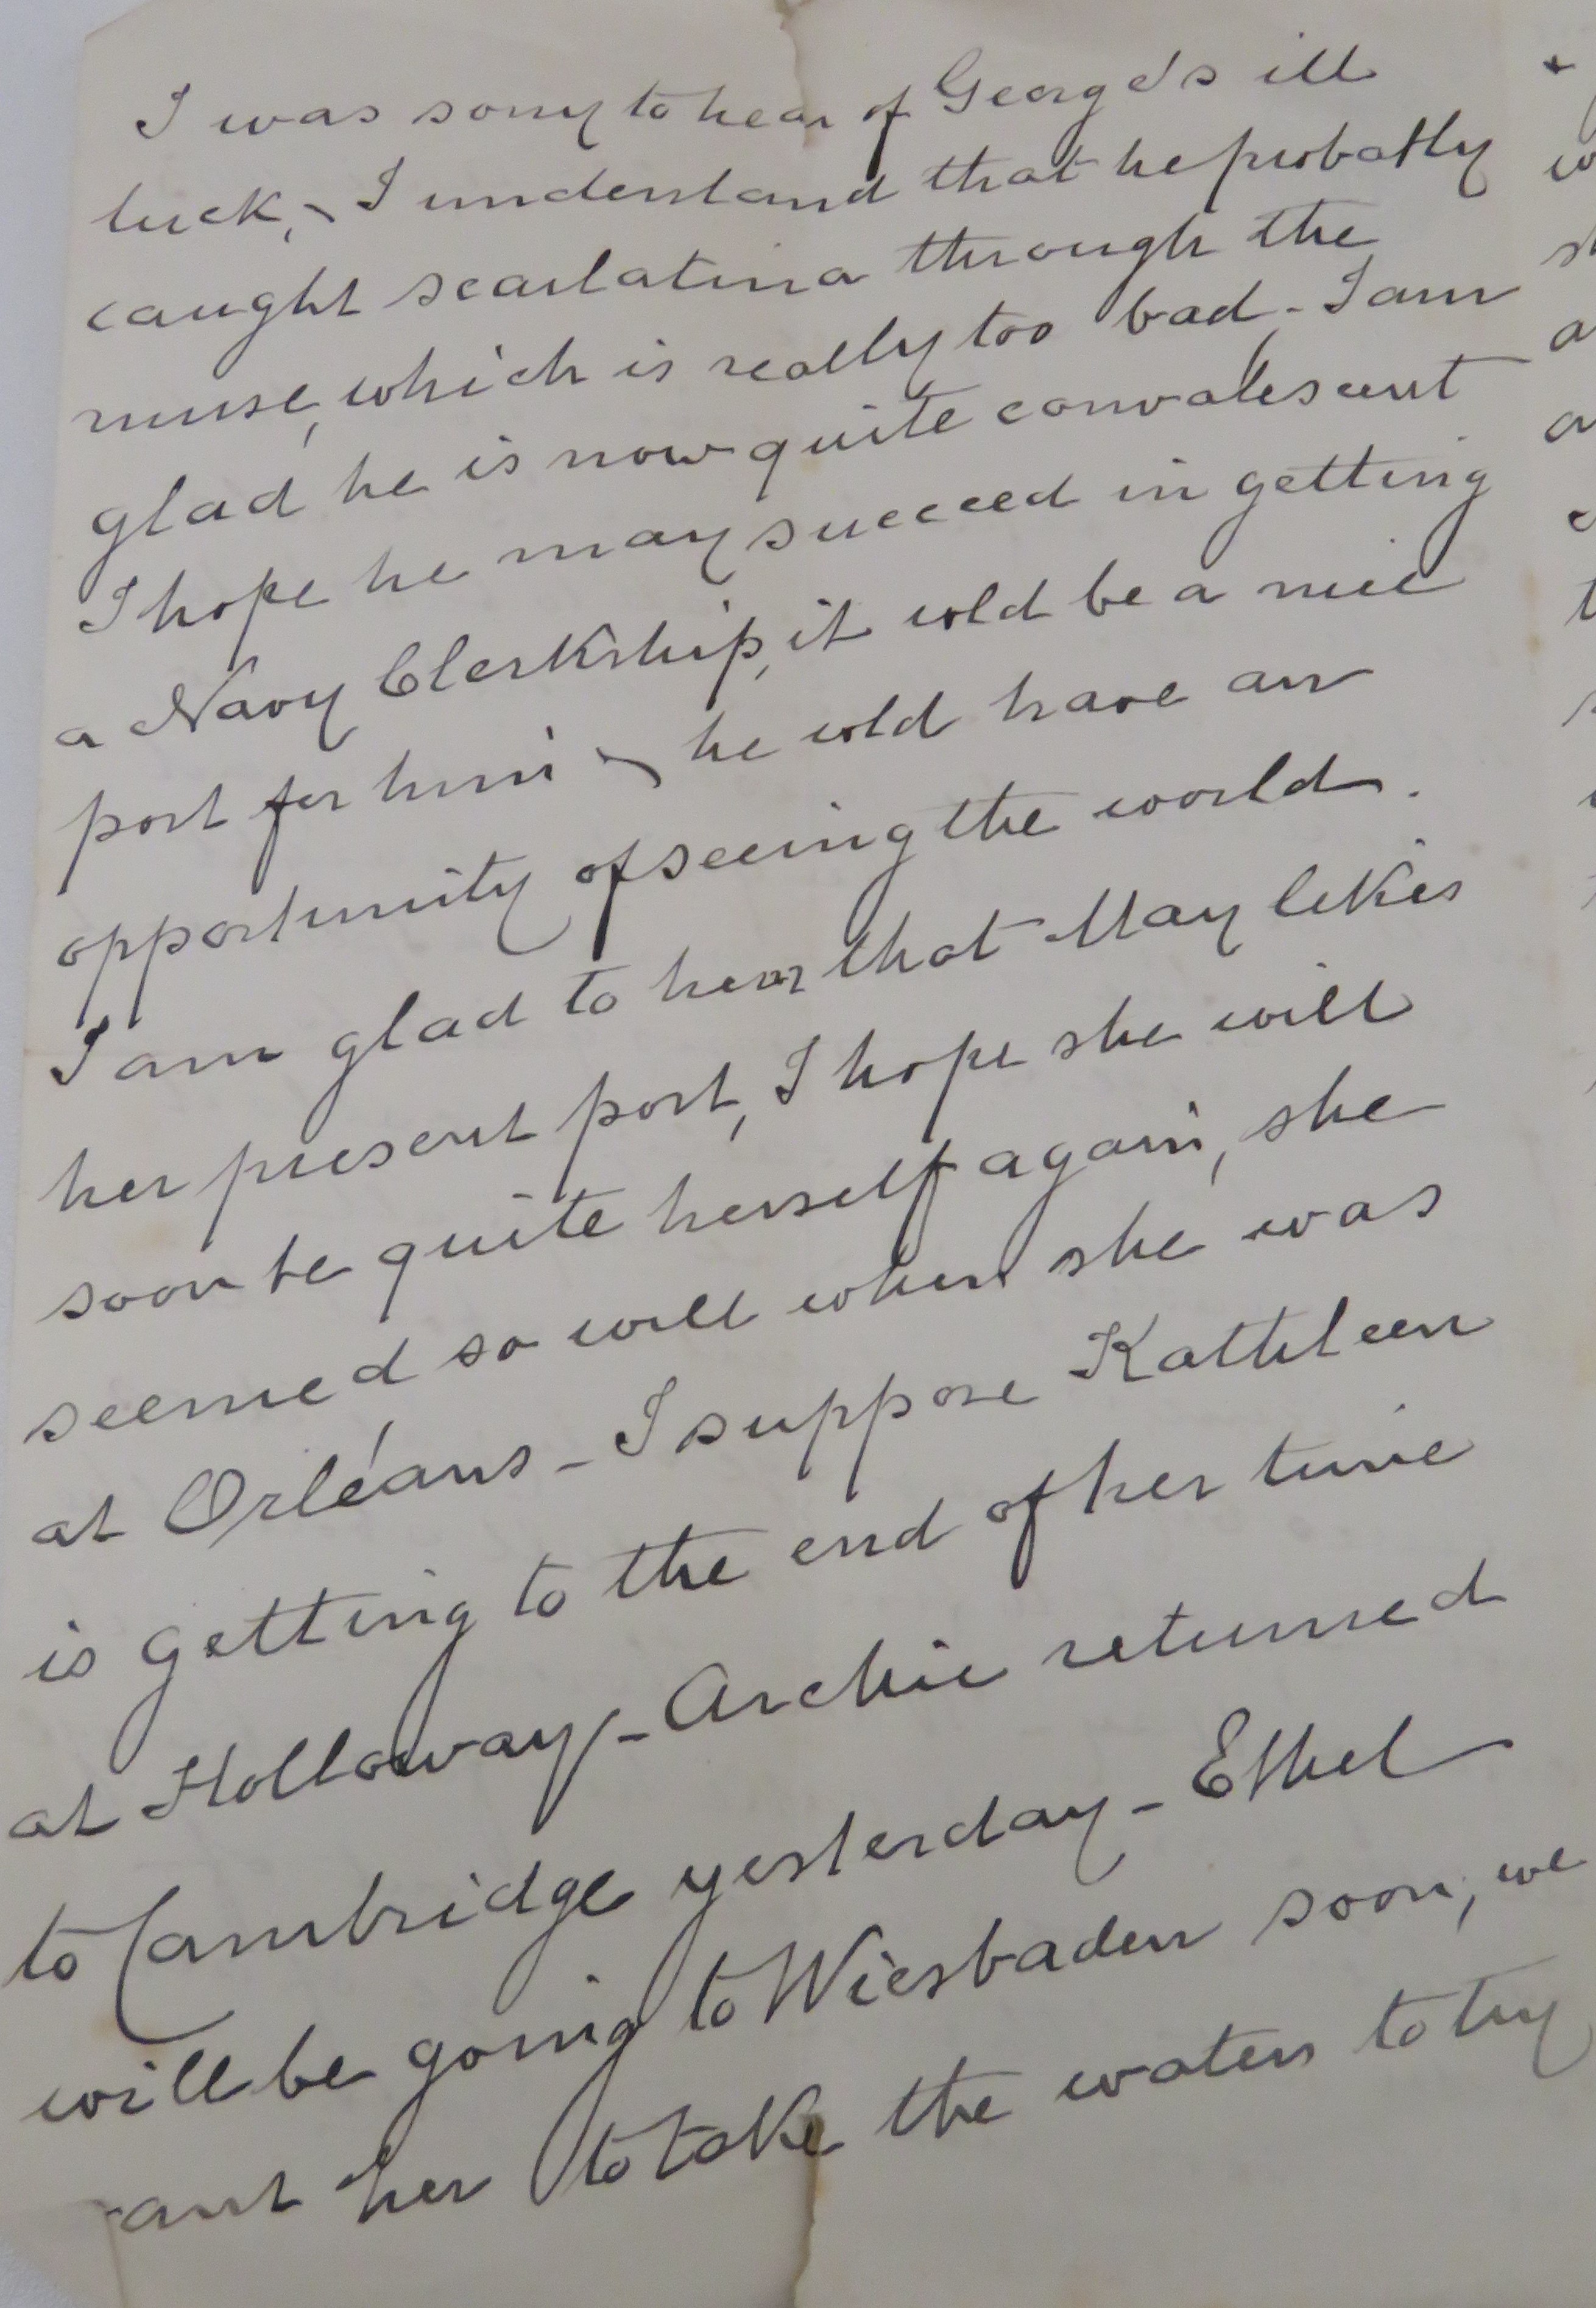 I was sorry to hear of George's ill
luck, & I understand that he probably
caught scarlatina through the
nurse, which is really too bad - I am
glad he is now quite convalescent
I hope he may succeed in getting
a Navy Clerkship, it wld be a nice
post for him & he wld have an
opportunity of seeing the world.
I am glad to hear that May likes
her present post, I hope she will
soon be quite herself again, she
seemed so well when she was
at Orléans - I suppose Kathleen
is getting to the end of her time
at Holloway - Archie returned
to Cambridge yesterday - Ethel
will be going to Wiesbaden soon, we
want her to take the waters to try